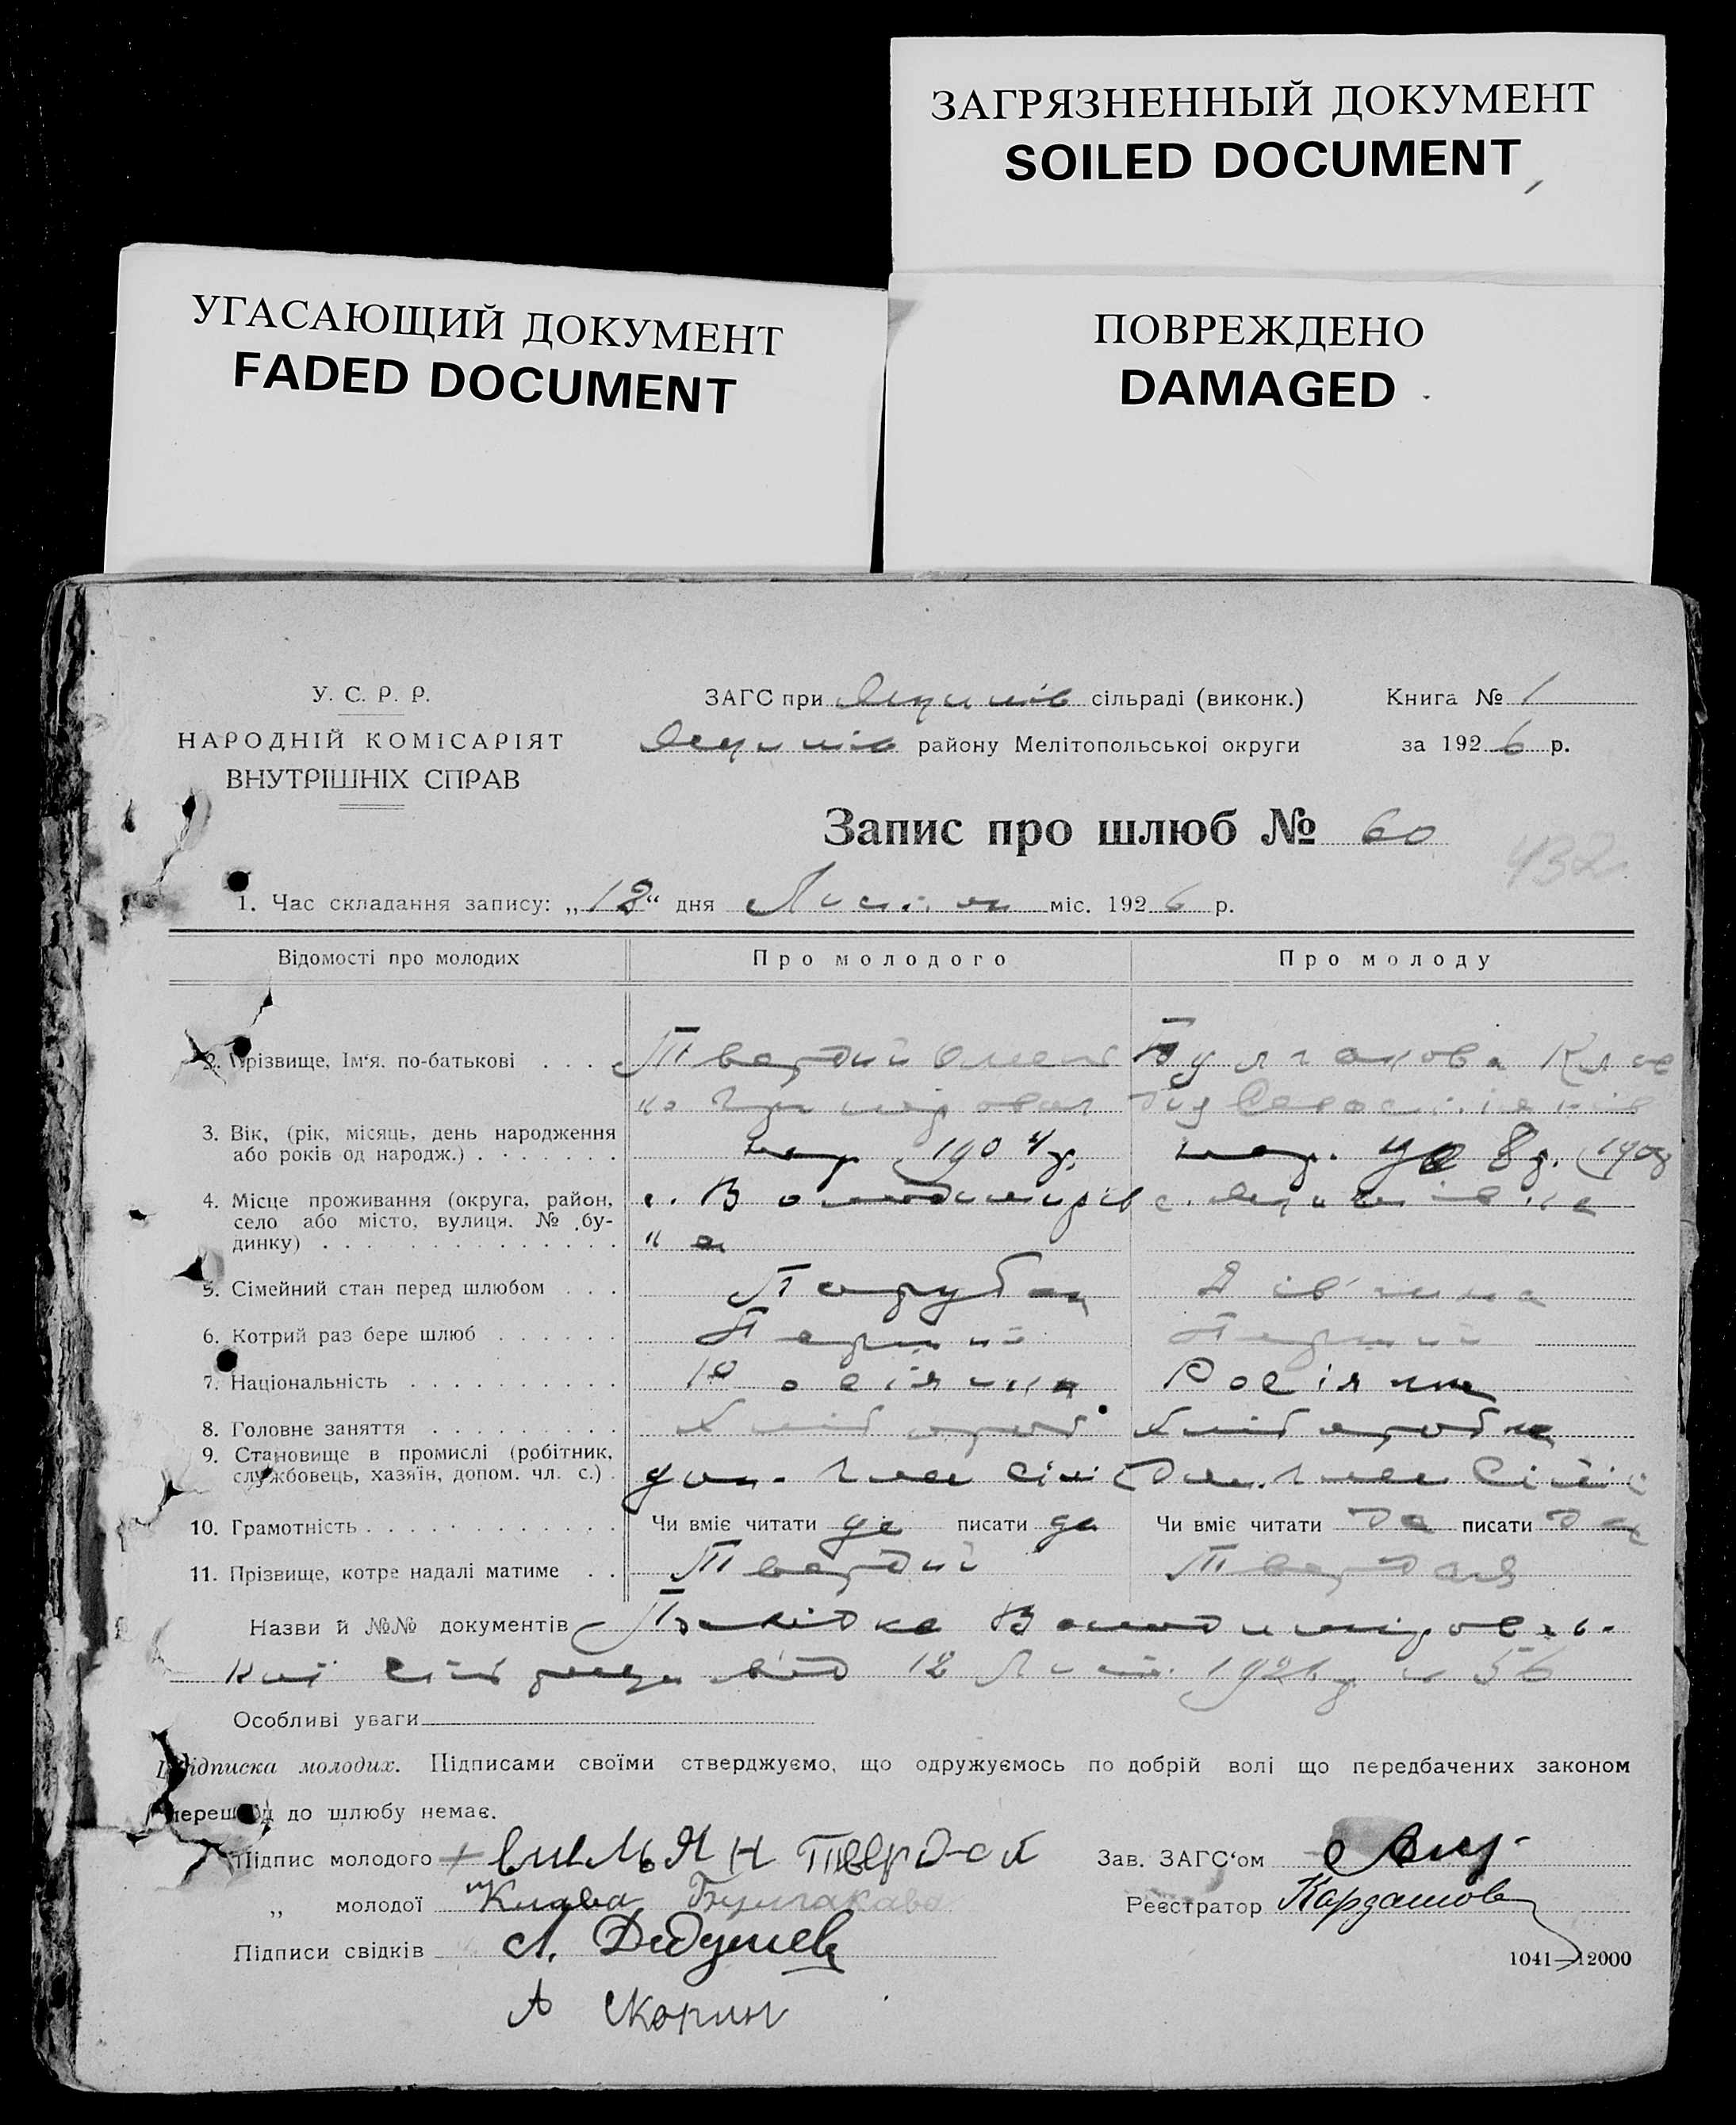 ЗАГРЯЗНЕННЫЙ ДОКУМЕНТ
SOILED DOCUMENT
УГАСАЮЩИЙ ДОКУМЕНТ
FADED DOCUMENT
ПОВРЕЖДЕНО
DAMAGED
У. С. Р. Р.
НАРОДНІЙ КОМІСАРІЯТ
ВНУТРІШНІХ СПРАВ
ЗАГС при сільраді (виконк.)
району Мелітопольської округи
Книга № 1
за 1926 р.
Запис про шлюб № 60
432
1. Час складання запису: „12“ дня міс. 1926 р.
Відомості про молодих Про молодого Про молоду
2. Прізвище, Ім'я, по-батькові Твердий Булгакова
3. Вік, (рік, місяць, день народження
або років од народж.) нар. 1904 р. нар. 8 р. (1908
4. Місце проживання (округа, район,
село або місто, вулиця, № бу-
динку) с. Володимирів с.
ка
5. Сімейний стан перед шлюбом Парубок Дівчина
6. Котрий раз бере шлюб Перший Перший
7. Національність Росіянин Росіянка
8. Головне заняття Хлібороб Хліборобка
9. Становище в промислі (робітник,
службовець, хазяїн, допом. чл. с.) доп. член сім'ї доп. член сім'ї
10. Грамотність Чи вміє читати да писати да Чи вміє читати да писати да
11. Прізвище, котре надалі матиме Твердий Твердая
Назви й №№ документів
сільради від 12 Лист. 1926 р. № 56
Особливі уваги
Підписка молодих. Підписами своїми стверджуємо, що одружуємось по добрій волі що передбачених законом
перешкод до шлюбу немає.
Підпис молодого Твердой
„ молодої Клава Булгакава
Підписи свідків Л. Дедушев
А Скорин
Зав. ЗАГС'ом
Реєстратор Кардашова
1041—12000